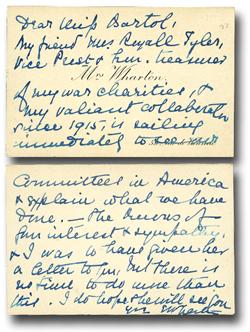 Dear Miss Bartol,
My friend Mrs Royall Tyler,
Vice Prest & Hon. treasurer
Mrs Wharton
of my war charities, &
my valiant collaborator
since 1915, is sailing
immediately to
Committees in America
& explain what we have
done. — She knows of
yr interest & sympathy,
& I was to have given her
a letter to you. But there is
no time to do more than
this. I do hope she will see you
Yrs EWharton